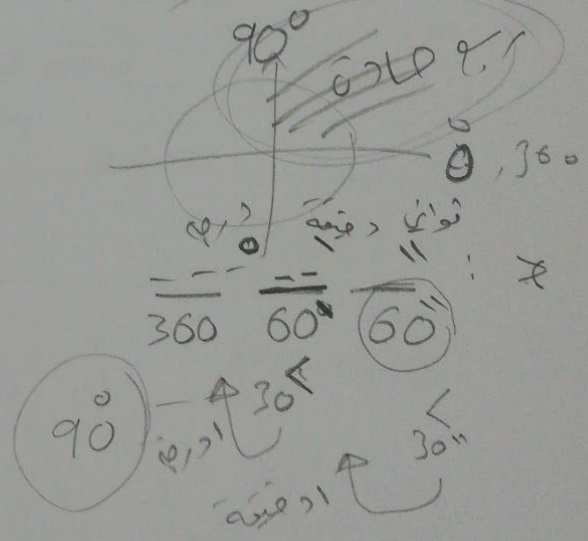 90°
حادة
0°, 360
درجة دقيقة ثواني
* :
360 60' 60"
90° 30 < 30" <
1 درجة
1 دقيقة